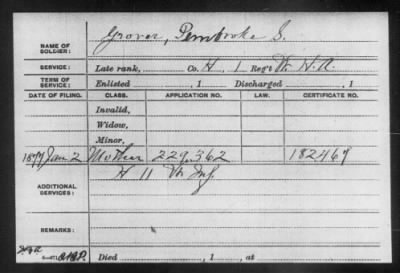 NAME OF SOLDIER: Grover, Pembroke S.
SERVICE: Late rank, Co. H, 1 Reg't Vt. H.A.
TERM OF SERVICE: Enlisted , 1 Discharged , 1
DATE OF FILING. CLASS. APPLICATION NO. LAW. CERTIFICATE NO.
Invalid,
Widow,
Minor,
1877 Jan 2 Mother 229,362 182467
ADDITIONAL SERVICES: H 11 Vt Inf.
REMARKS:
Died , 1 , at